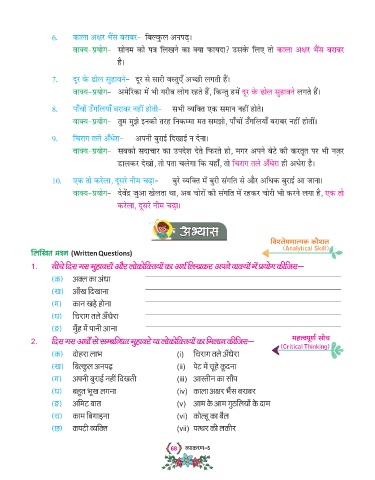 6. काला अक्षर भैंस बराबर– बिल्कुल अनपढ़।
वाक्य-प्रयोग– सोनम को पत्र लिखने का क्या फायदा? उसके लिए तो काला अक्षर भैंस बराबर
है।
7. दूर के ढोल सुहावने– दूर से सारी वस्तुएँ अच्छी लगती हैं।
वाक्य-प्रयोग– अमेरिका में भी गरीब लोग रहते हैं, किन्तु हमें दूर के ढोल सुहावने लगते हैं।
8. पाँचों उँगलियाँ बराबर नहीं होती– सभी व्यक्ति एक समान नहीं होते।
वाक्य-प्रयोग– तुम मुझे इनको तरह निकम्मा मत समझो, पाँचों उँगलियाँ बराबर नहीं होतीं।
9. चिराग तले अँधेरा– अपनी बुराई दिखाई न देना।
वाक्य-प्रयोग– सबको सदाचार का उपदेश देते फिरते हो, मगर अपने बेटे की करतूत पर भी नज़र
डालकर देखो, तो पता चलेगा कि यहाँ, तो चिराग तले अँधेरा ही अधेरा है।
10. एक तो करेला, दूसरे नीम चढ़ा– बुरे व्यक्ति में बुरी संगति से और अधिक बुराई आ जाना।
वाक्य-प्रयोग– देवेंद्र जुआ खेलता था, अब चोरों की संगति में रहकर चोरी भी करने लगा है, एक तो
करेला, दूसरे नीम चढ़ा।
अभ्यास
विश्लेषणात्मक कौशल
(Analytical Skill)
लिखित प्रश्न (Written Questions)
1. नीचे दिए गए मुहावरों और लोकोक्तियों का अर्थ लिखकर अपने वाक्यों में प्रयोग कीजिए–
(क) अक्ल का अंधा
(ख) आँख दिखाना
(ग) कान खड़े होना
(घ) चिराग तले अँधेरा
(ङ) मुँह में पानी आना
महत्वपूर्ण सोच
(Critical Thinking)
2. दिए गए अर्थों से सम्बन्धित मुहावरे या लोकोक्तियों का मिलान कीजिए–
(क) दोहरा लाभ (i) चिराग तले अँधेरा
(ख) बिल्कुल अनपढ़ (ii) पेट में चूहे कूदना
(ग) अपनी बुराई नहीं दिखती (iii) आस्तीन का साँप
(घ) बहुत भूख लगना (iv) काला अक्षर भैंस बराबर
(ङ) अमिट बात (v) आम के आम गुठलियों के दाम
(च) काम बिगाड़ना (vi) कोल्हू का बैल
(छ) कपटी व्यक्ति (vii) पत्थर की लकीर
68 व्याकरण–5